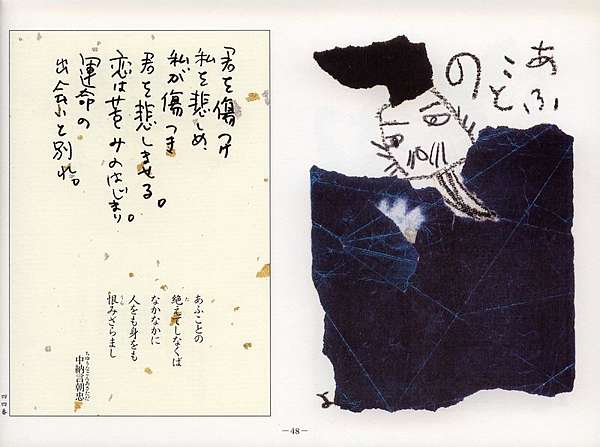 あふ
こと
の
君を傷つけ
私を悲しめ、
私が傷つき
君を悲しませる。
恋は苦しみのはじまり。
運命の
出会いと別れ。
あふことの
絶えてしなくば
なかなかに
人をも身をも
恨みざらまし
中納言朝忠
四四番
−48−